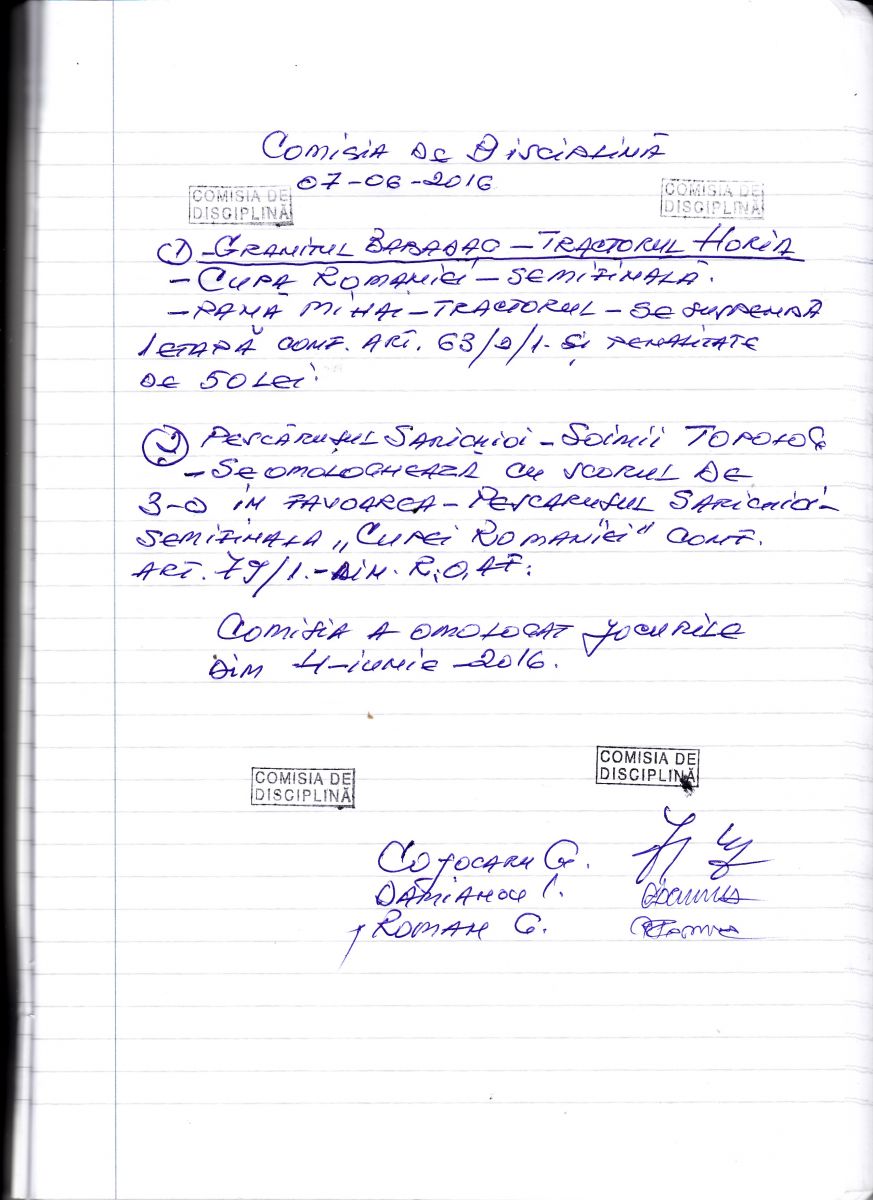 COMISIA DE DISCIPLINĂ
07-06-2016
COMISIA DE
DISCIPLINĂ
COMISIA DE
DISCIPLINĂ
① -GRANITUL BABADAG -TRACTORUL HORIA
- CUPA ROMANIEI - SEMIFINALĂ.
- PANĂ MIHAI - TRACTORUL - SE SUSPENDĂ
1 ETAPĂ CONF. ART. 63/a/1. ȘI PENALITATE
DE 50 LEI.
② PESCĂRUȘUL SARICHIOI - SOIMII TOPOLOG
- SE OMOLOGHEAZĂ CU SCORUL DE
3-0 IN FAVOAREA - PESCARUSUL SARICHIOI -
SEMIFINALA „CUPEI ROMANIEI" CONF.
ART. 79/1. - DIN. R.O.A.F.
COMISIA A OMOLOGAT JOCURILE
DIN 4-IUNIE-2016.
COMISIA DE
DISCIPLINĂ
COMISIA DE
DISCIPLINĂ
COJOCARU G.
DAMIANOV I.
ROMAN G.